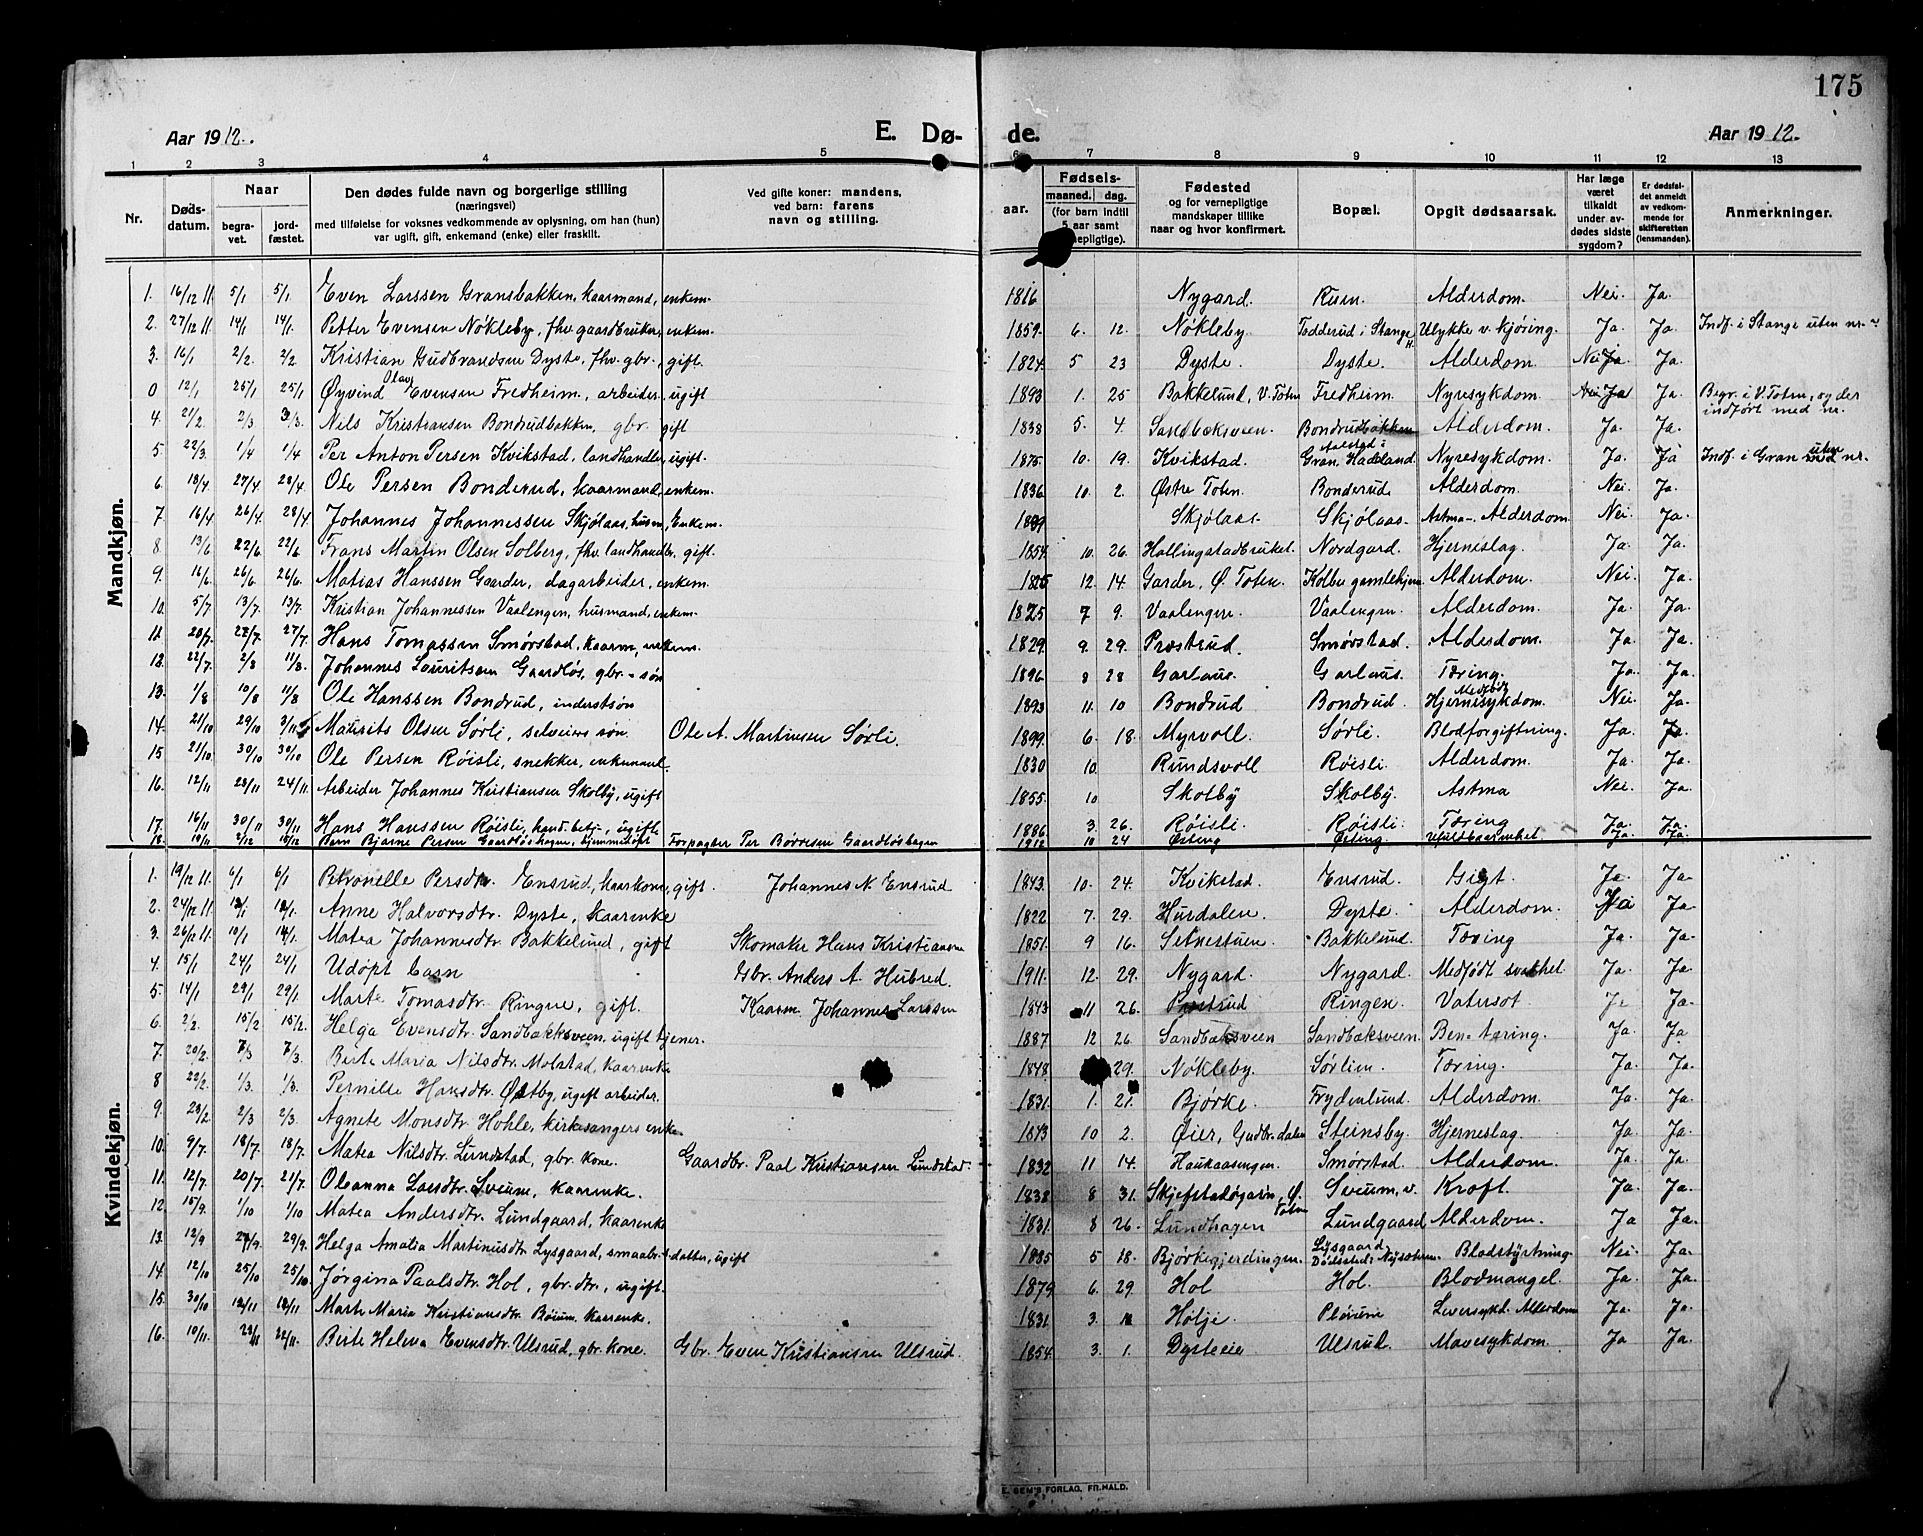 175
Aar 1912. E. Dø- de. Aar 1912.
1 2 3 4 5 6 7 8 9 10 11 12 13
Nr. Døds-datum. Naar begra-vet. jord-fæstet. Den dødes fulde navn og borgerlige stilling (næringsvei) med tilføielse for voksnes vedkommende av oplysning, om han (hun) var ugift, gift, enkemand (enke) eller fraskilt. Ved gifte koner: mandens, ved barn: farens navn og stilling. aar. Fødsels- maaned. dag. (for barn indtil 5 aar samt nepligtige). Fødested og for vernepligtige mandskaper tillike naar og hvor konfirmert. Bopæl. Opgit dødsaarsak. Har læge været tilkaldt under av-dødes sidste sygdom? Er dødsfal-det anmeldt av vedkom-mende for skifteretten (lensmanden). Anmerkninger.
Mandkjøn.
1. 16/12 11. 5/1 5/1 Even Larssen Gransbakken, kaarmand, enkem. 1816 Nygard. Ruen. Alderdom. Nei. Ja.
2. 27/12 11. 14/1 14/1. Petter Evensen Nökleby, fhv. gaardbruker, enkem. 1859. 6. 12. Nökleby. Todderud i Stange H. Ulykke v. kjøring. Ja. Ja. Indf. i Stange uten nr.
3. 16/1 2/2. 2/2 Kristian Gudbrandsen Dyste, fhv. gbr., gift. 1824. 5 23 Dyste. Dyste. Alderdom. Nei Ja Ja.
0 12/1 25/1 25/1 Øyvind Olav Evensen Fredheim, arbeider, ugift 1893 1. 25 Bakkelund, V. Toten Fredheim. Nyresykdom. Nei Ja Ja. Begr. i V. Toten, og der indført med nr.
4. 21/2. 2/3 3/3. Nils Kristiansen Bondrudbakken, gbr. gift 1838 5. 4. Sandbæksveen. Bondrudbakken Alderdom. Ja. Ja.
5. 22/3. 1/4 1/4 Per Anton Persen Kvikstad, landhandler, ugift. 1875. 10. 19. Kvikstad. Gran, Hadeland. Nyresykdom. Ja. Ja Indf. i Gran uten nr.
6. 18/4. 27/4 28/4. Ole Persen Bonderud, kaarmand, enkem. 1836. 10. 2. Østre Toten. Bonderud Alderdom. Nei. Ja.
7. 16/4 26/4. 28/4 Johannes Johannessen Skjølaas, husm., Enkem. Skjølaas. Skjølaas. Astma. Alderdom Nei. Ja.
8. 13/6 22/6. 22/6 Frans Martin Olsen Solberg, fhv. landhandler, gift. 1854. 10. 26. Hallingstadbruket. Nordgard. Hjerneslag. Ja. Ja.
9. 16/6. 26/6. 26/6. Matias Hanssen Gaarder, dagarbeider, enkem. 1825 12. 14. Garder, Ø. Toten. Kolbu gamlehjem Alderdom. Nei. Ja.
10. 5/7 13/7. 13/7. Kristian Johannessen Vaalengen, husmand, enkem. 1825 7 9. Vaalengen. Vaalengen. Alderdom. Ja. Ja.
11. 20/7. 22/7. 27/7. Hans Tomassen Smørstad, kaarm., enkem. 1829. 9. 29. Præstrud. Smørstad. Alderdom. Ja. Ja.
12. 22/7. 2/8 11/8. Johannes Lauritsen Gaardløs, gbr.-søn 1896. 8 28 Garlaus. Garlaus. Tæring. Ja. Ja.
13. 1/8 10/8 11/8 Ole Hanssen Bondrud, inderstsøn 1893 11. 10 Bondrud Bondrud. Medfødt Hjernesykdom. Nei. Ja.
14. 21/10 29/10 3/11 Maurits Olsen Sørli, selveiers søn. Ole A. Martinsen Sørli. 1899. 6. 18. Myrvoll. Sørli. Blodforgiftning. Ja. Ja.
15 21/10. 30/10 30/10 Ole Persen Røisli, snekker, enkemand. 1830 10. Rundsvoll Røisli. Alderdom. Ja. Ja.
16. 12/11 23/11 24/11. Arbeider Johannes Kristiansen Skolby, ugift 1855. 10 Skolby Skolby. Astma Nei. Ja.
17. 16/11 30/11 30/11 Hans Hanssen Røisli, hand.betj., ugift. 1886 3. 26. Røisli. Røisli. Tæring Ja. Ja.
18. 19/11 2/12 15/12 Barn Bjarne Persen Gaardløshagen, hjemmedøpt Forpagter Per Børresen Gaardløshagen 1912 10 24 Østeng Østeng. Ufuldbaarenhet. Ja. Ja.
Kvindekjøn.
1. 19/12 11. 6/1 6/1 Petronelle Persdtr. Ensrud, kaarkone, gift. Johannes N. Ensrud 1843. 10. 24. Kvikstad. Ensrud. Gigt. Ja. Ja.
2. 24/12 11. 12/1 12/1. Anne Halvorsdtr. Dyste, kaarenke 1822. 7. 29. Hurdalen. Dyste. Alderdom. Ja Ja.
3. 26/12 11. 10/1 12/1. Matea Johannesdtr. Bakkelund, gift Skomaker Hans Kristiansen 1851. 9 16. Setnestuen. Bakkelund. Tæring Ja. Ja.
4. 15/1 24/1 24/1. Udøpt barn Gbr. Anders A. Hubred. 1911. 12. 29. Nygard. Nygard. Medfødt svakhet Ja. Ja.
5. 14/1 29/1 29/1. Marte Tomasdtr. Ringen, gift. Kaarm. Johannes Larssen 1843 11 26. Præstrud Ringen. Vatersot. Ja Ja.
6. 2/2. 15/2 15/2. Helga Evensdtr. Sandbæksveen, ugift tjener. 1887 12 26. Sandbæksveen Sandbæksveen. Ben-tæring. Ja. Ja.
7. 20/2. 7/3 7/3. Berte Maria Nilsdtr. Molstad, kaarenke 1848. 29. Nökleby. Sörlien. Tæring. Ja. Ja.
8 22/2. 1/3. 1/3. Pernille Hansdtr. Østby, ugift arbeider. 1831. 1. 21. Bjørke. Frydenlund. Alderdom. Ja. Ja.
9. 23/2 2/3 2/3. Agnete Monsdtr. Hohle, kirkesangers enke 1843 10 2. Øier, Gudbr.dalen Steinsby. Hjerneslag. Ja. Ja.
10. 9/7. 18/7. 18/7. Matea Nilsdtr. Lundstad, gbr. kone. Gaardbr. Paal Kristiansen Lundstad. 1832 11 14. Haukaasengen. Smørstad. Alderdom. Ja. Ja.
11. 12/7. 20/7. 21/7. Oleanna Larsdtr. Sveum, kaarenke. 1838. 8 31. Skjefstadøgarn, Ø. Toten Sveum, v. Kræft. Ja. Ja.
12. 15/9. 1/10 1/10 Matea Andersdtr. Lundgaard, kaarenke 1831. 8 26. Lundhagen Lundgaard Alderdom. Ja Ja.
13. 12/9 29/9. Helga Amalia Martinusdtr. Lysgaard, smaabr. datter, ugift 1885 5 18. Bjørkegjerdingen. Lysgaard Dødssted: Nysæteren. Blodstyrtning. Nei. Ja.
14. 12/10 25/10 25/10. Jørgina Paalsdtr. Hol, gbr. dtr., ugift. 1879 6. 29. Hol Hol. Blodmangel. Ja. Ja.
15. 30/10 12/11 12/11 Marte Maria Kristiansdtr. Bøium, kaarenke. 1831. 3. Holje. Leversykd. Alderdom Ja. Ja.
16. 10/11. 22/11. Berte Helena Evensdtr. Ulsrud, gbr. kone. Gbr. Even Kristiansen Ulsrud. 1854 3. 1. Dysteeie Ulsrud. Mavesykdom. Ja Ja.
E. SEM'S FORLAG, FR.HALD.